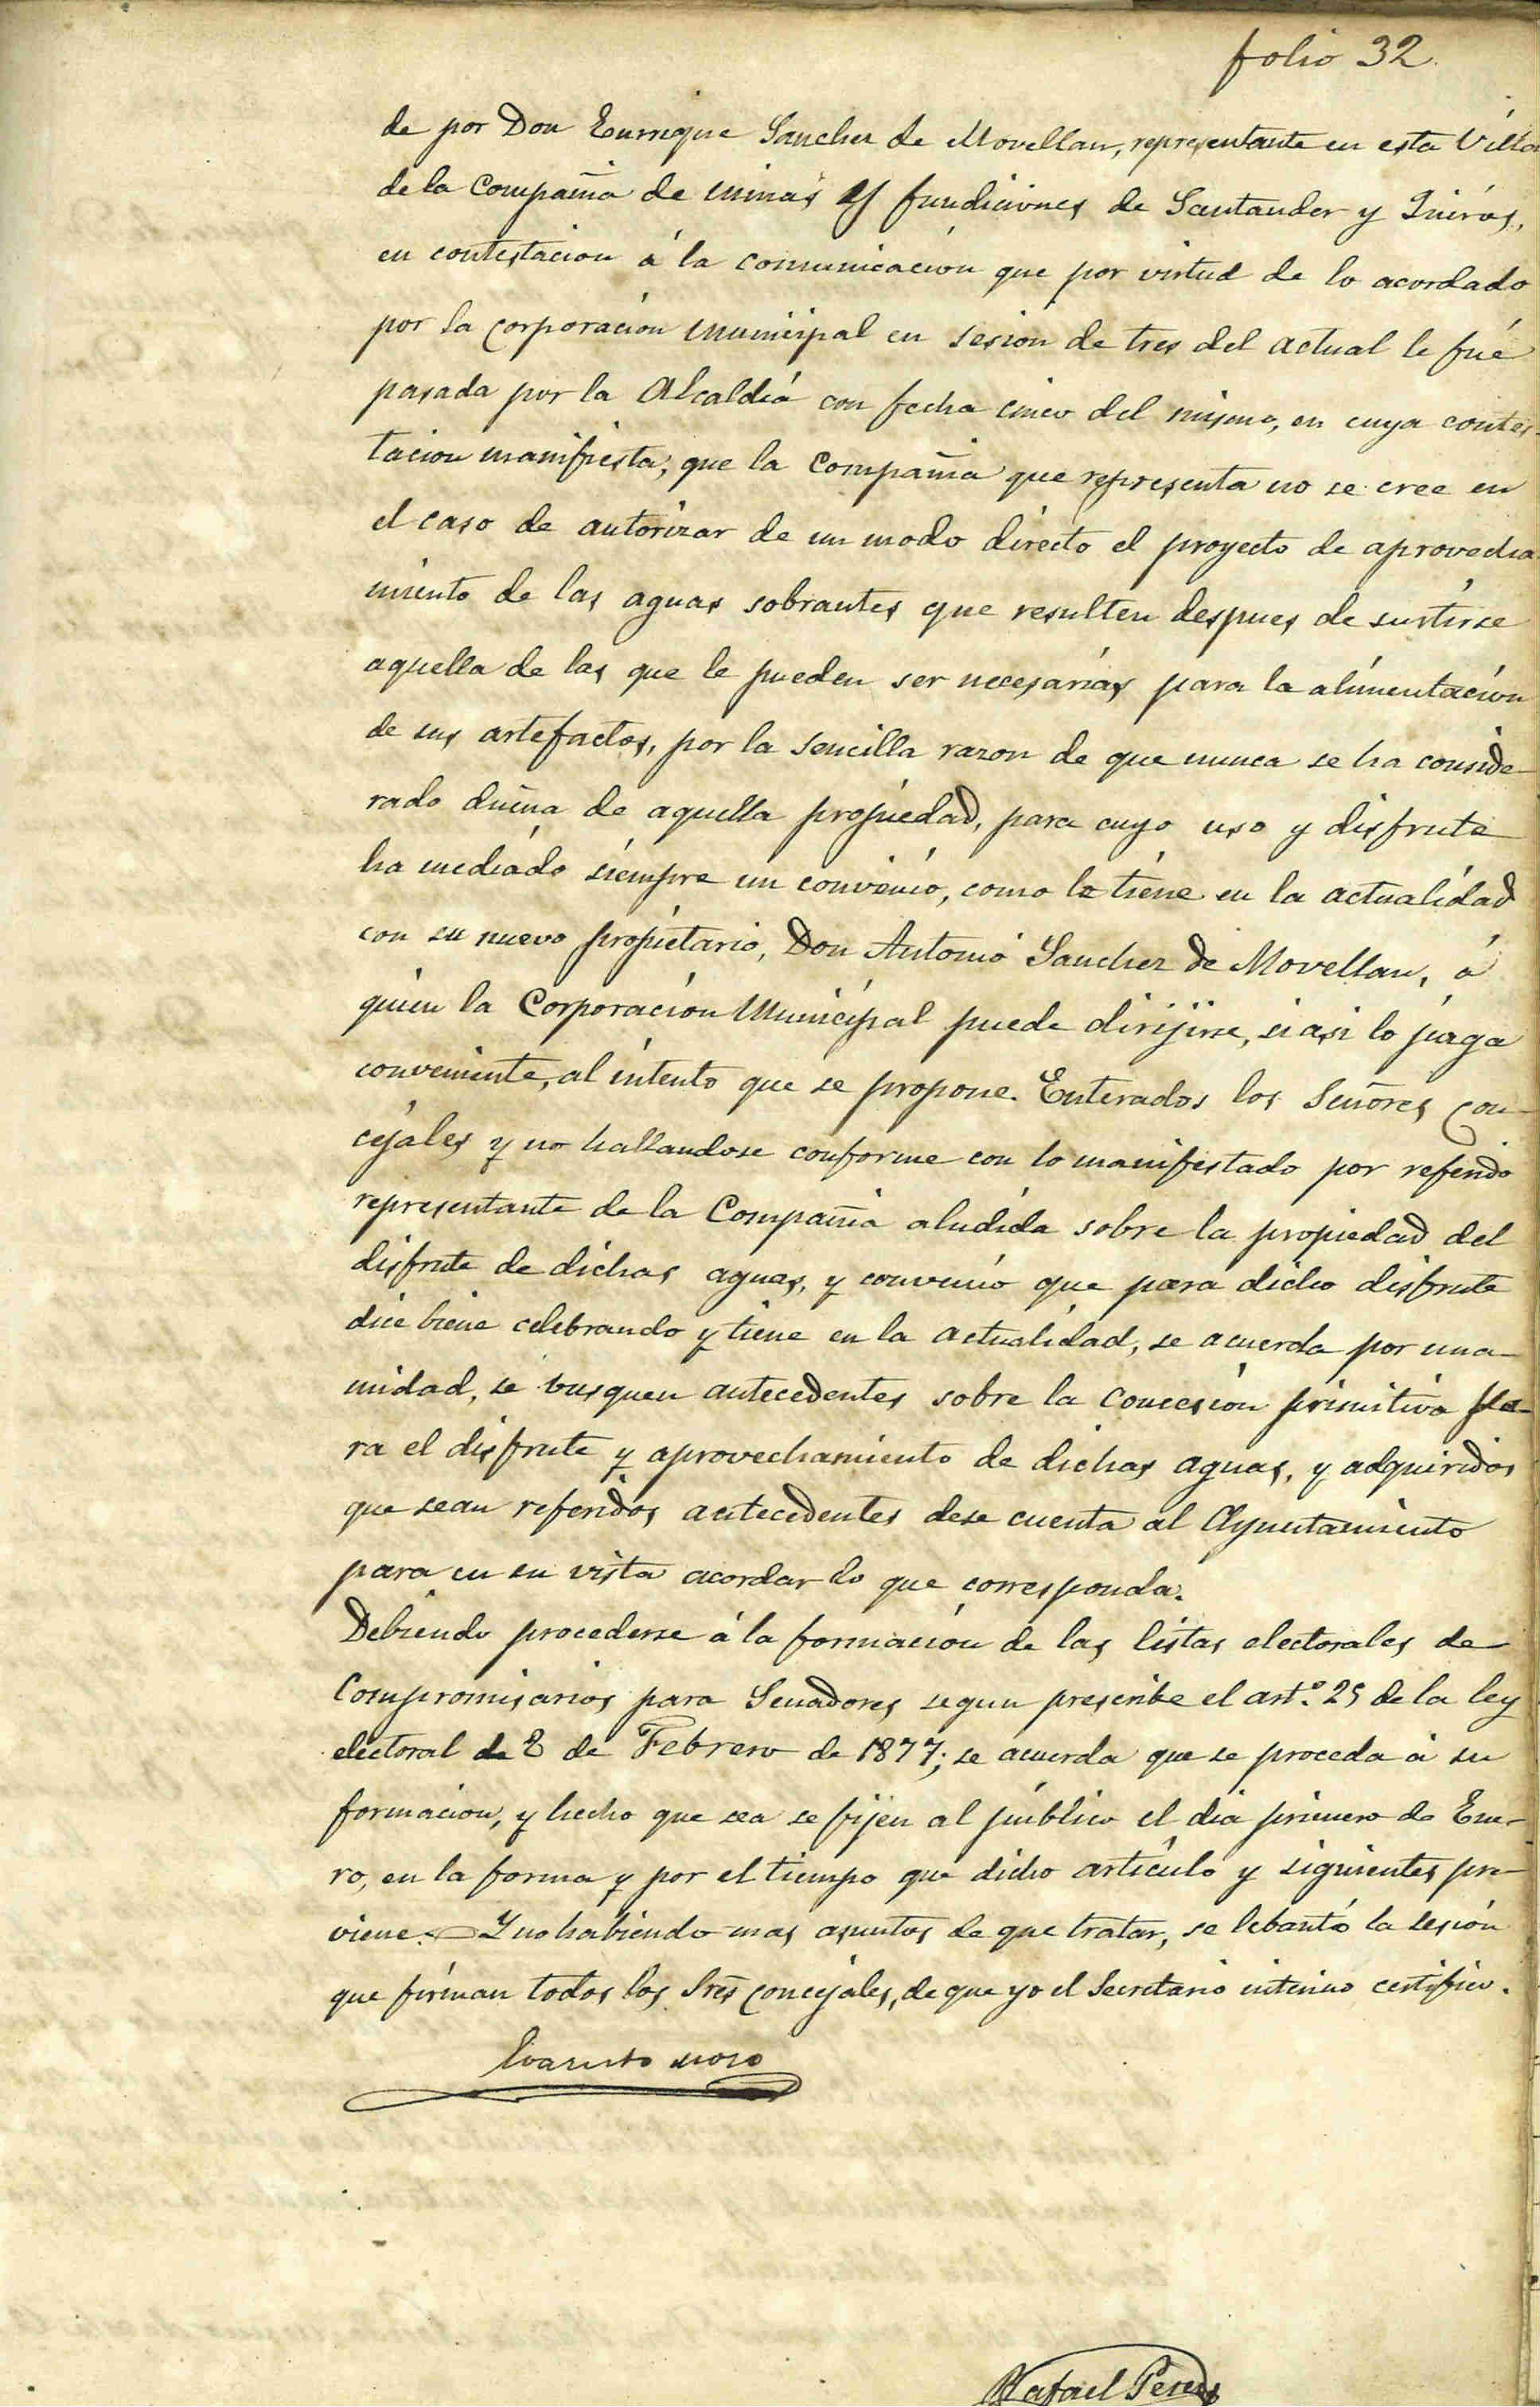 folio 32.
de por Don Enrrique Sanchez de Movellan, representante en esta Villa
de la Compañia de minas y fundiciones de Santander y Quirós,
en contestacion á la comunicacion que por virtud de lo acordado
por la corporacion municipal en sesion de tres del actual le fué
pasada por la Alcaldia con fecha cinco del mismo, en cuya contes-
tacion manifiesta, que la Compañia que representa no se cree en
el caso de autorizar de un modo directo el proyecto de aprovecha
miento de las aguas sobrantes que resulten despues de surtirse
aquella de las que le pueden ser necesarias para la alimentacion
de sus artefactos, por la sencilla razon de que nunca se ha conside-
rado dueña de aquella propiedad, para cuyo uso y disfrute
ha mediado siempre un convenio, como lo tiene en la actualidad
con su nuevo propietario, Don Antonio Sanchez de Movellan, á
quien la Corporacion Municipal puede dirijirse, si asi lo juzga
conveniente, al intento que se propone. Enterados los Señores con-
cejales y no hallandose conforme con lo manifestado por referido
representante de la Compañia aludida sobre la propiedad del
disfrute de dichas aguas, y convenio que para dicho disfrute
dice biene celebrando y tiene en la actualidad, se acuerda por una-
midad, se busquen antecedentes sobre la concesion primitiva pa-
ra el disfrute y aprovechamiento de dichas aguas, y adquiridos
que sean referidos antecedentes dese cuenta al Ayuntamiento
para en su vista acordar lo que corresponda.
Debiendo procederse á la formacion de las listas electorales de
Compromisarios para Senadores segun prescribe el art.º 25 de la ley
electoral de 8 de Febrero de 1877; se acuerda que se proceda á su
formacion, y hecho que sea se fijen al público el dia primero de Ene-
ro, en la forma y por el tiempo que dicho articulo y siguientes pre-
viene. Y no habiendo mas asuntos de que tratar, se lebantó la sesion
que firman todos los Sres concejales, de que yo el Secretario interino certifico.
Evaristo moro
Rafael Perez